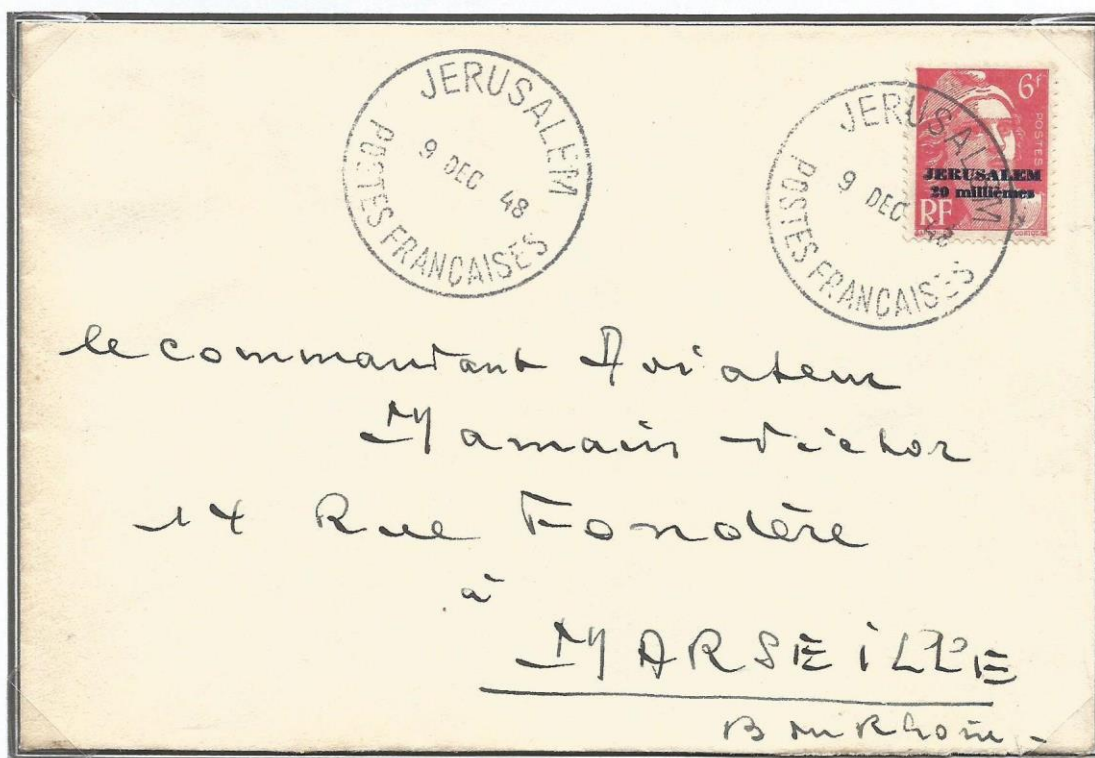 JERUSALEM
9 DEC 48
POSTES FRANÇAISES
JERUSALEM
9 DEC 48
POSTES FRANÇAISES
6F
POSTES
JERUSALEM
20 millièmes
RF
le commandant Aviateur
Mamain Victor
14 Rue Fondère
à
MARSEiLLE
B du Rhône